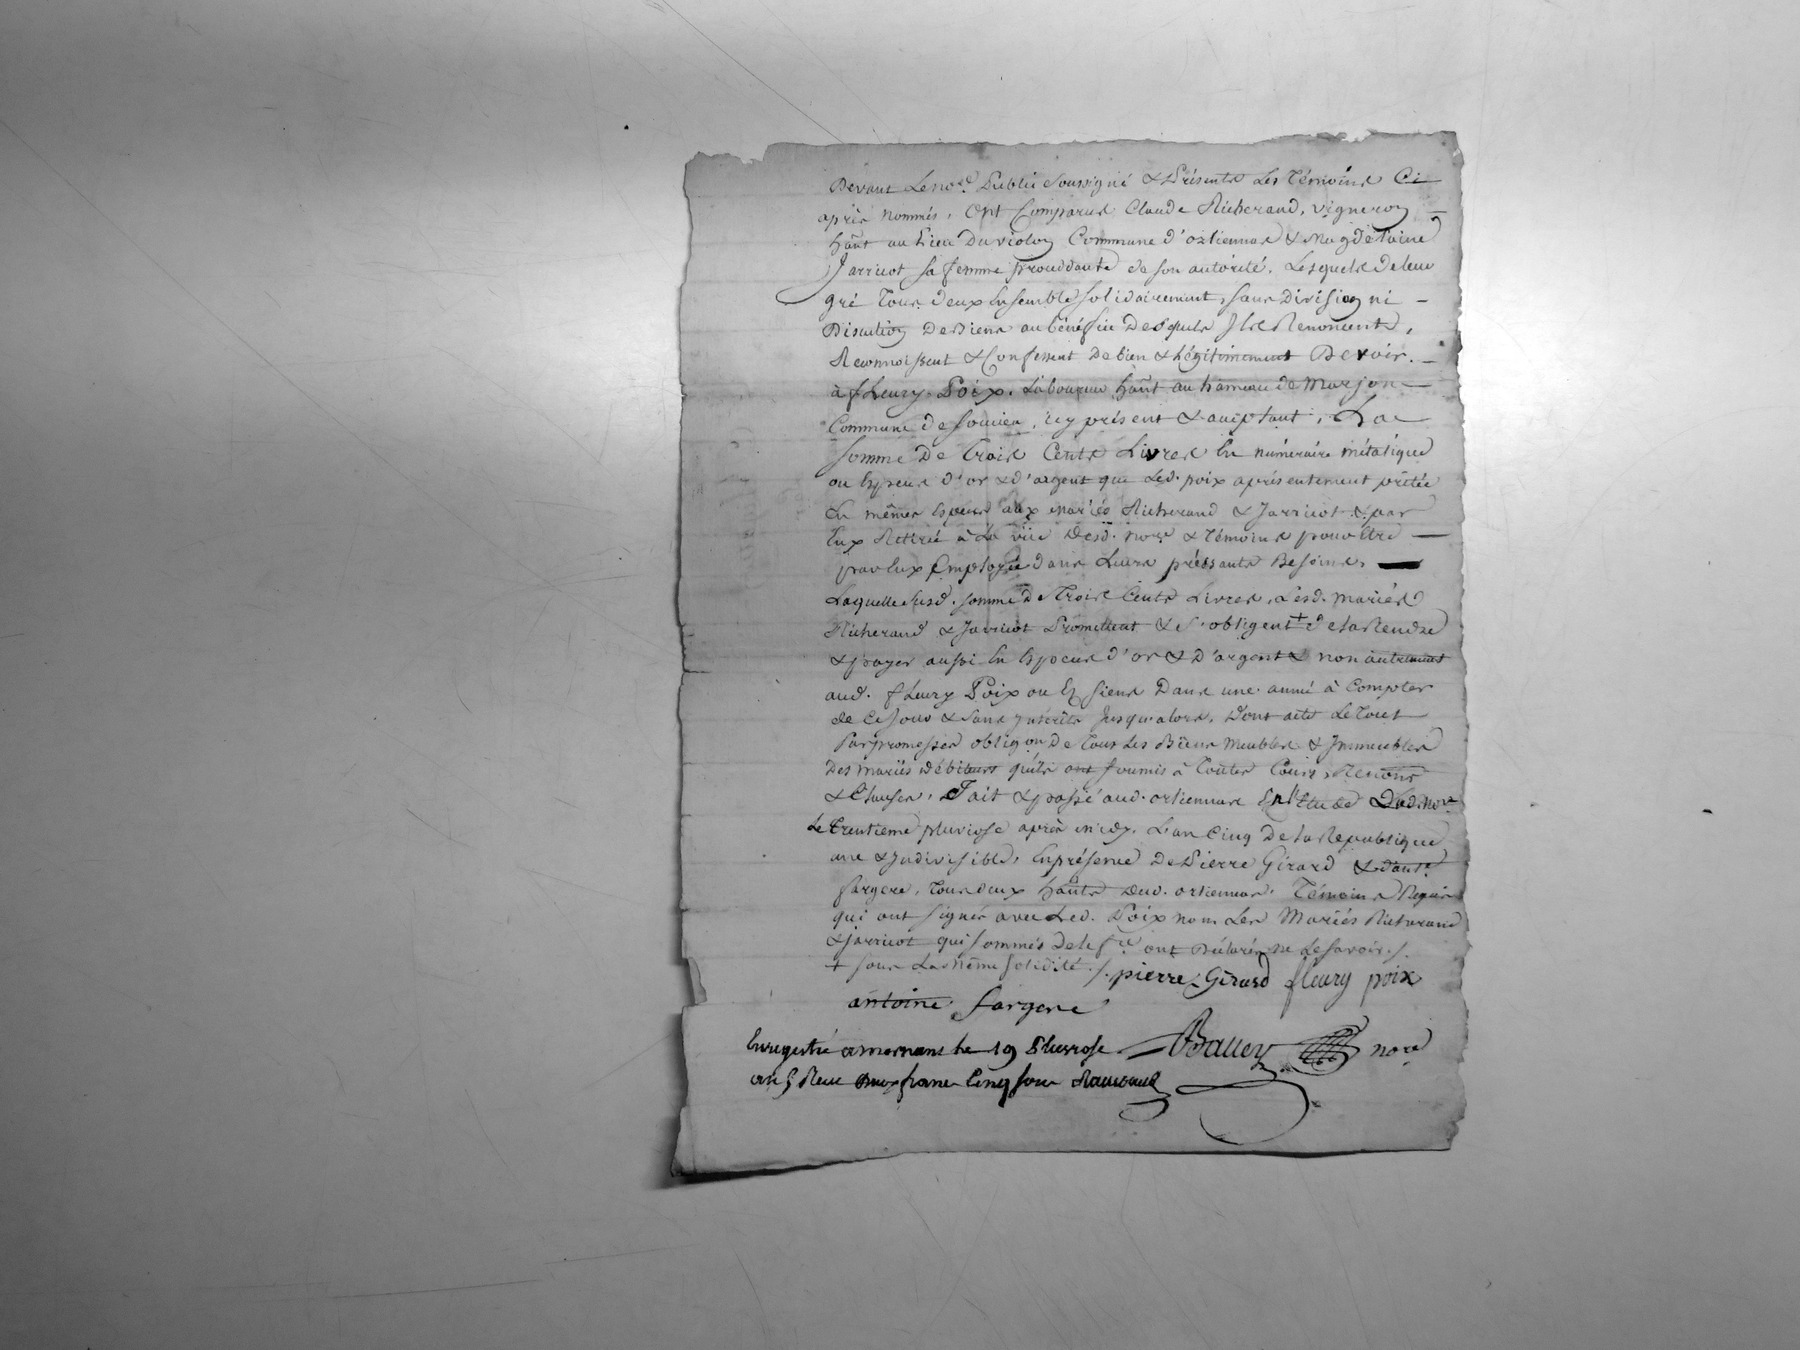 Devant Le no.re Public soussigné & Présents Les Témoins Ci
après nommés, ont Comparus Claude Richerand, vigneron
hañt au Lieu Duviolon Commune d'ortiennas & Magdelaine
Jarricot sa femme procedante de son autorité. Lesquels de leur
gré Tous deux Ensemble solidairement, sans Division ni
Discution De Biens au bénéfice Desquels Ils Renoncent,
Reconnoissent & Confessent De bien & Légitimement Devoir.
à fleury Poix. Laboureur hañt au hameau de Marjon
Commune de soucieu, icy présent & acceptant, La
somme De Trois Cents Livres En numéraire métalique
ou Espèces d'or & d'argent que Led. poix a présentement prétée
En mêmes Espèces aux mariés Richerand & Jarricot & par
Eux Retirée à La vüe Desd. no.re & Témoins pour être
par Eux Employée dans Leurs préssants Besoins,
Laquelle susd. somme De Trois Cents Livres, Lesd. mariés
Richerand & Jarricot Promettent & s'obligent + de la Rendre
& payer aussi En Espèces d'or & D'argent & non autrement
aud. fleury Poix ou Es siens Dans une année à Compter
de Ce Jour & sans Intérêts Jusqu'alors. Dont acte Le Tout
Par promesses oblig.on De Tous Les Biens Meubles & Immeubles
Des mariés débiteurs qu'ils ont soumis à Toutes Cours, Renons
& Clauses. Fait & passé aud. ortiennas En l'Etude Dud. no.re
Le Trentieme pluviose après midy. L'an Cinq De la Republique
une & Indivisible, En présence De Pierre Girard & d'ant.e
fargere, Tous deux hañts Dud. ortiennas. Témoins Requis
qui ont signés avec Led. Poix non Les Mariés Richerand
& Jarricot qui sommés de le f.re ont Déclarés ne Le savoir ./.
+ sous La même solidité ./. pierre Girard fleury poix
antoine fargere
Enregistré a mornans le 19 Pluviose Balley no.re
an 5 Reçu Deux franc Cinq sous